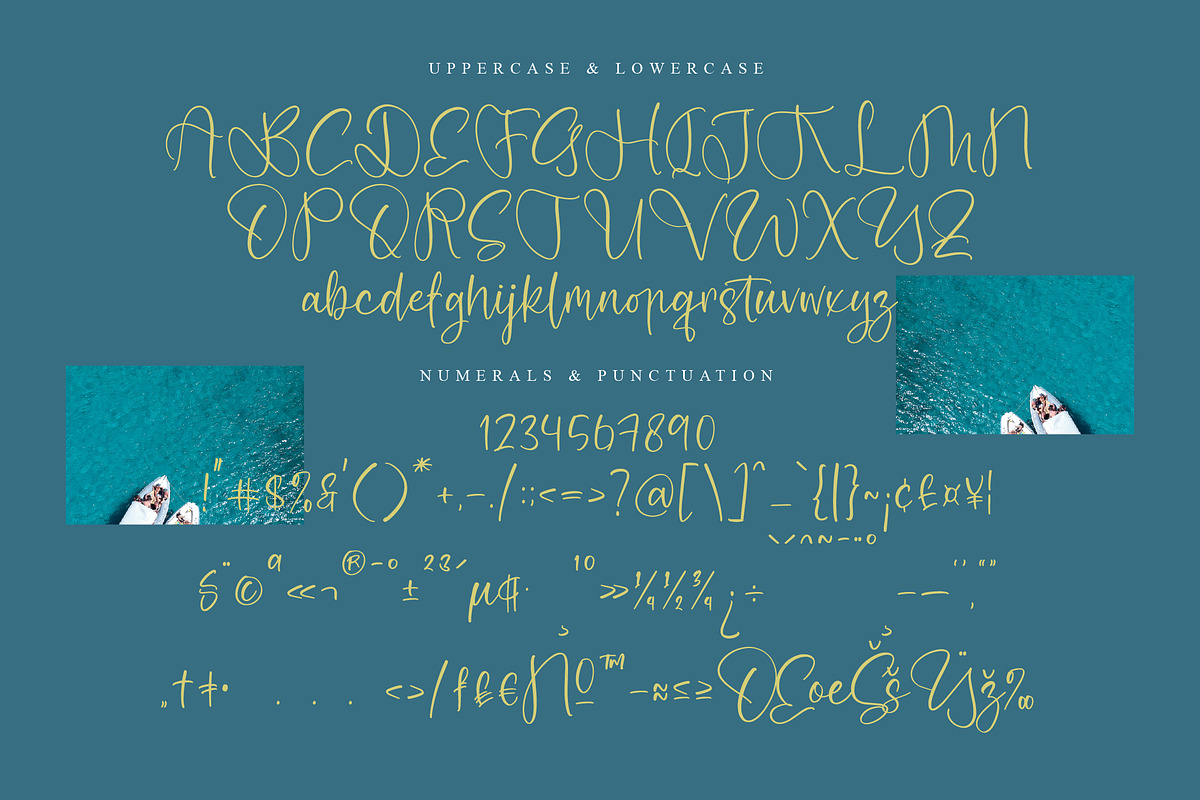 UPPERCASE & LOWERCASE
ABCDEFGHIJKLMN
OPQRSTUVWXYZ
abcdefghijklmnopqrstuvwxyz
NUMERALS & PUNCTUATION
1234567890
!"#$%&'()*+,-./:;<=>?@[\]^_`{|}~¡¢£¤¥¦
§¨©ª«¬®¯°±²³´µ¶·¹º»¼½¾¿÷ –—‘’‚“”
„†‡•...‹›⁄₣₤€№™−≈≤≥ŒœŠšŸž‰